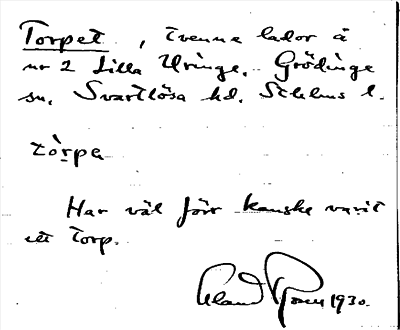 Torpet, tvenne lador å
nr 2 Lilla Uringe. Grödinge
sn. Svartlösa hd. Sthlms l.
tòrpe
Har väl förr kanske varit
ett torp.
1930.